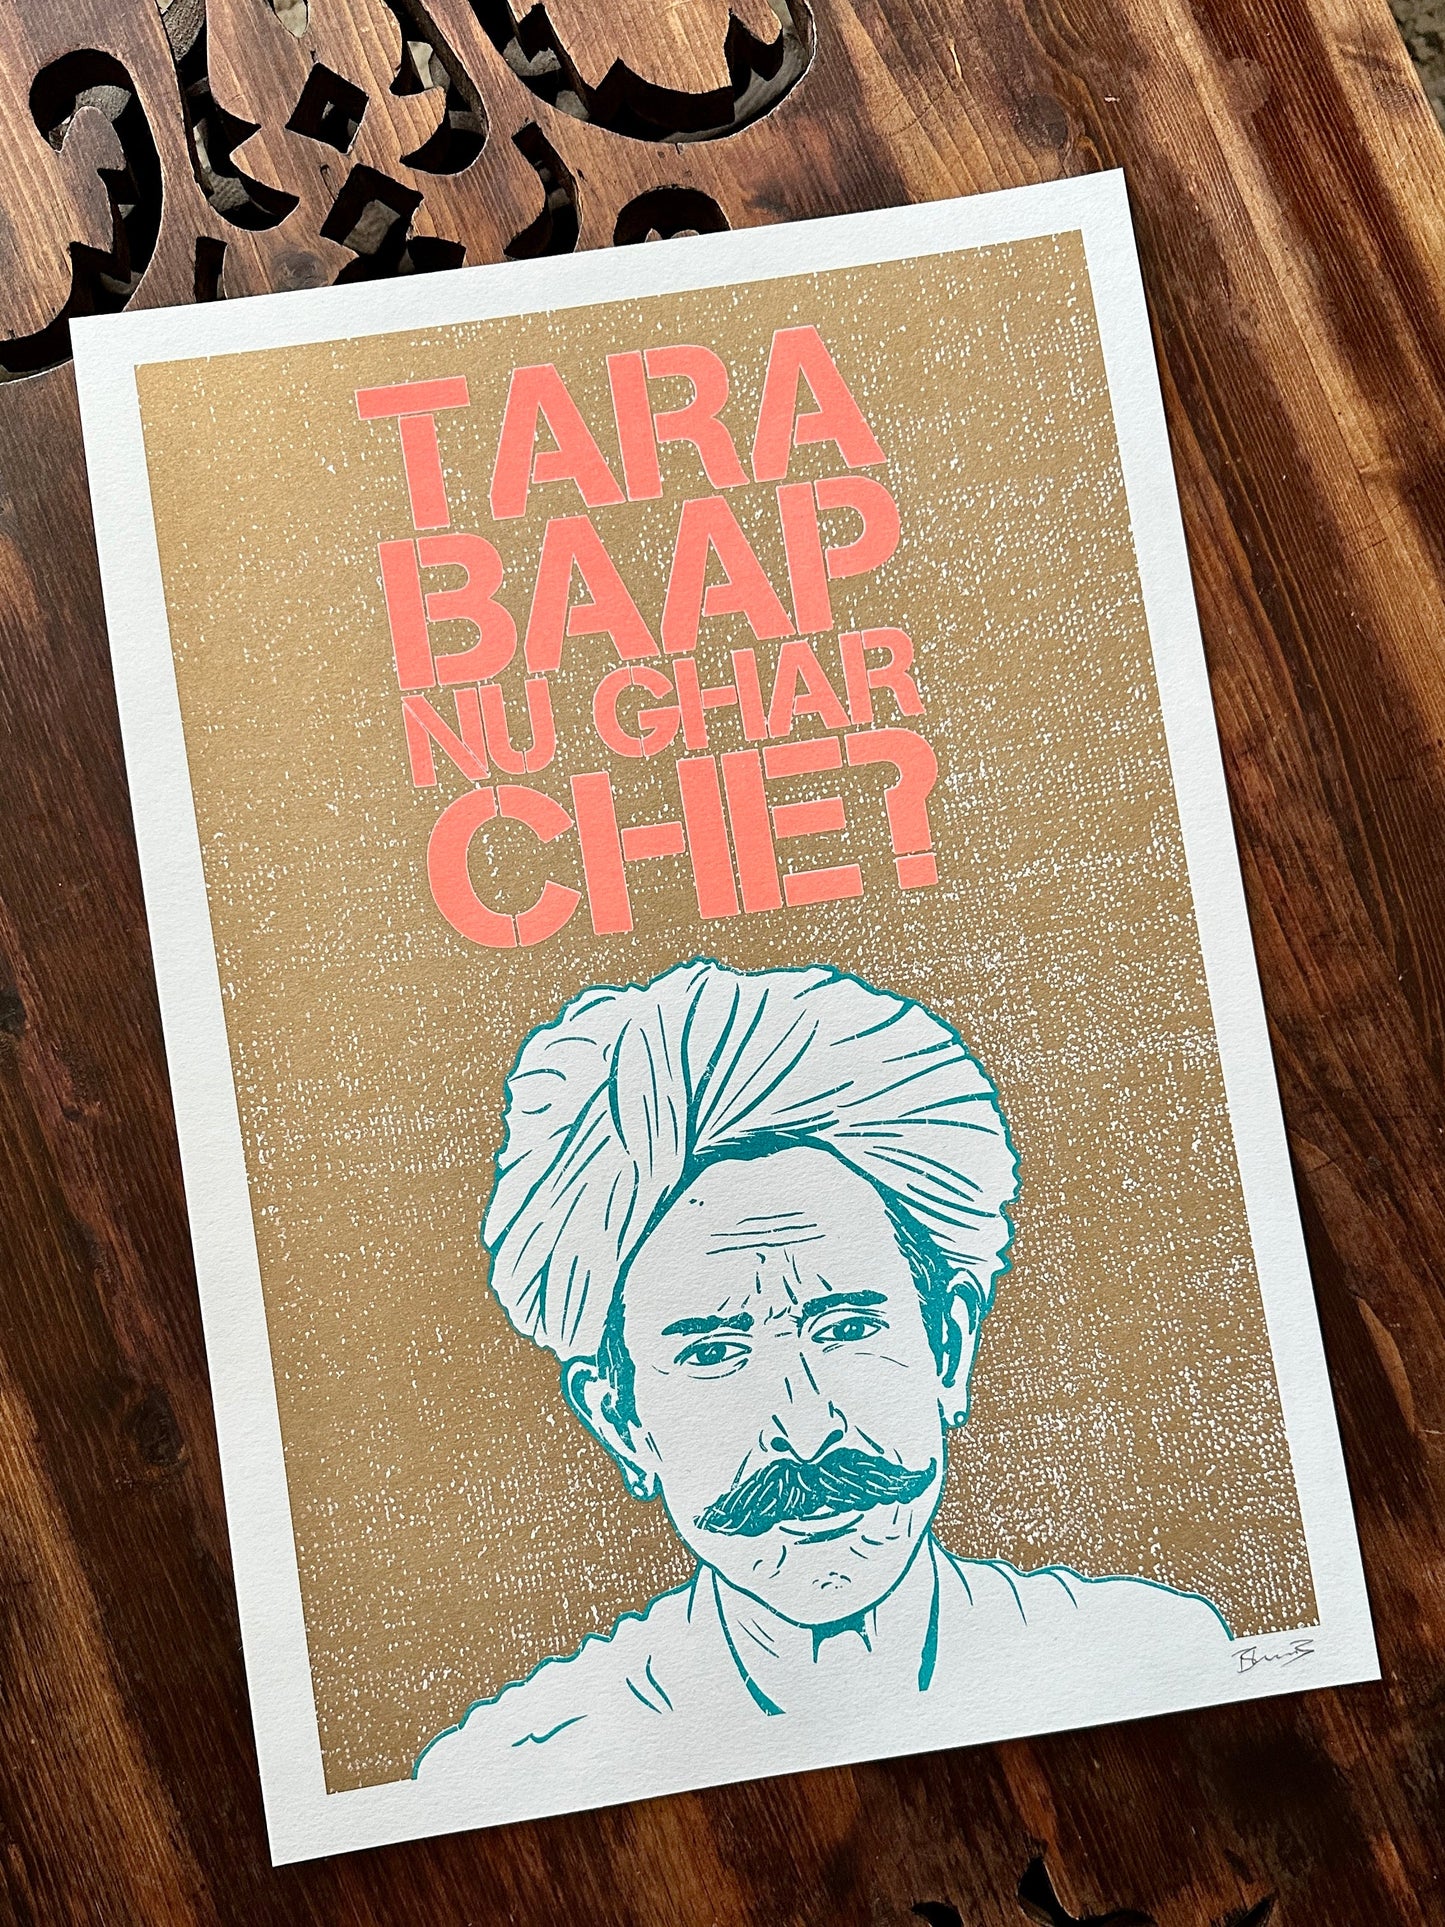 TARA
BAAP
NU GHAR
CHE?